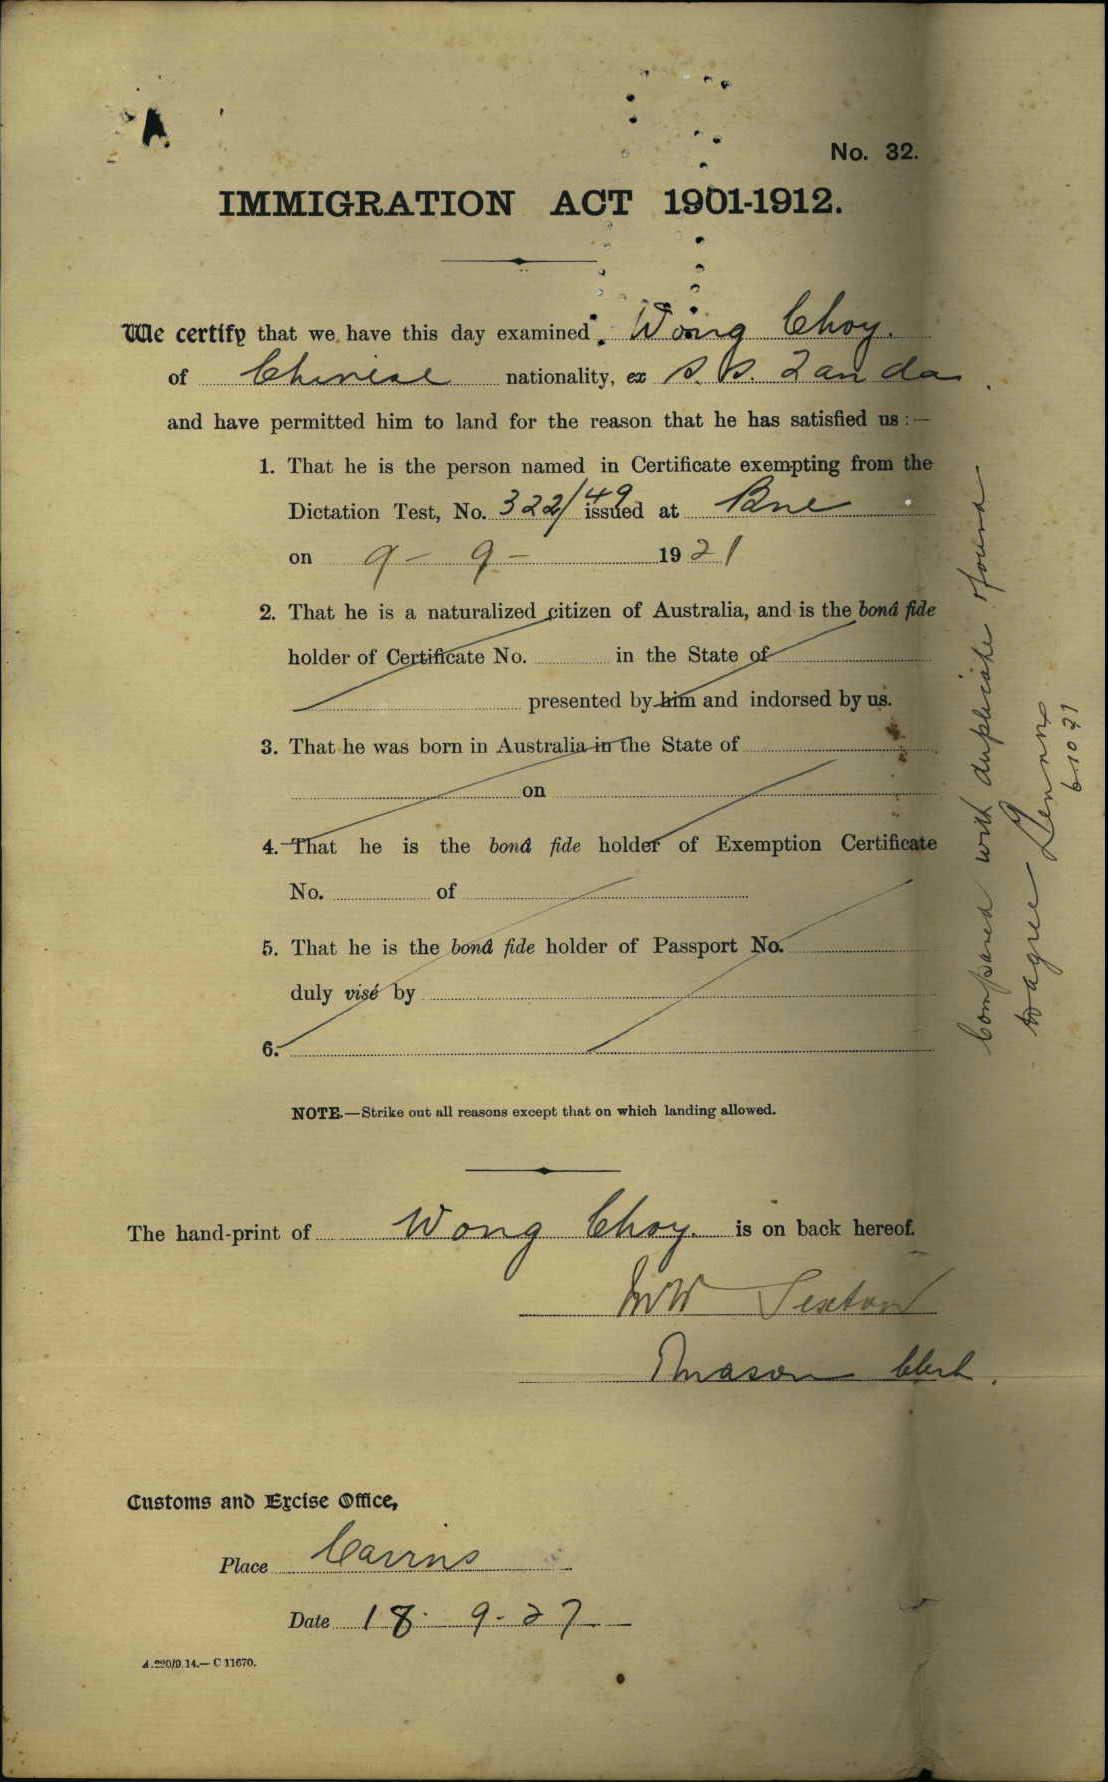 No. 32.
IMMIGRATION ACT 1901-1912.
We certify that we have this day examined Wong Choy.
of Chinese nationality, ex s. s.
and have permitted him to land for the reason that he has satisfied us :—
1. That he is the person named in Certificate exempting from the
Dictation Test, No. 322/49 issued at Bne
on 9 – 9 – 1921
2. That he is a naturalized citizen of Australia, and is the bonâ fide
holder of Certificate No. in the State of
presented by him and indorsed by us.
3. That he was born in Australia in the State of
on
4. That he is the bonâ fide holder of Exemption Certificate
No. of
5. That he is the bonâ fide holder of Passport No.
duly visé by
6.
NOTE.—Strike out all reasons except that on which landing allowed.
The hand-print of Wong Choy. is on back hereof.
Sexton
Mason Clerk.
Customs and Excise Office,
Place Cairns
Date 18. 9. 27
A.220/9.14.— C 11670.
Compared with duplicate & found
to agree